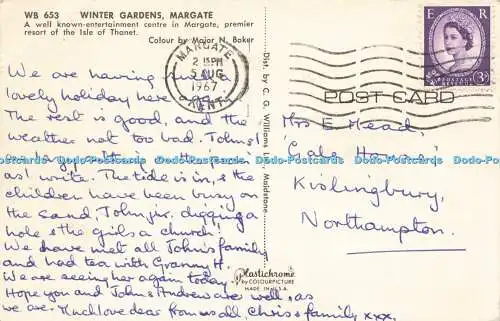 WB 653 WINTER GARDENS, MARGATE
A well known entertainment centre in Margate, premier
resort of the Isle of Thanet.
Colour by Major N. Baker
We are having such a
lovely holiday here
The rest is good, and the
weather not too bad. John's
as I write. The tide is in, & the
children have been busy on
the sand, John jr. digging a
hole & the girls a church!
We have met all John's family
and had tea with Granny H.
We are seeing her again today.
Hope you and John & Andrew are well, as
we are. Much love dear from us all, Chris & family xxx.
Dist. by C. G. Williams Maidstone
Plastichrome
by COLOURPICTURE
MADE IN U.S.A.
MARGATE
2 15 PM
5 AUG
1967
KENT
E R
POSTAGE REVENUE
3D
POST CARD
Mrs E. Mead,
Kislingbury,
Northampton.
Dodo-Postcards Dodo-Postcards Dodo-Postcards Dodo-Postcards Dodo-Postcards